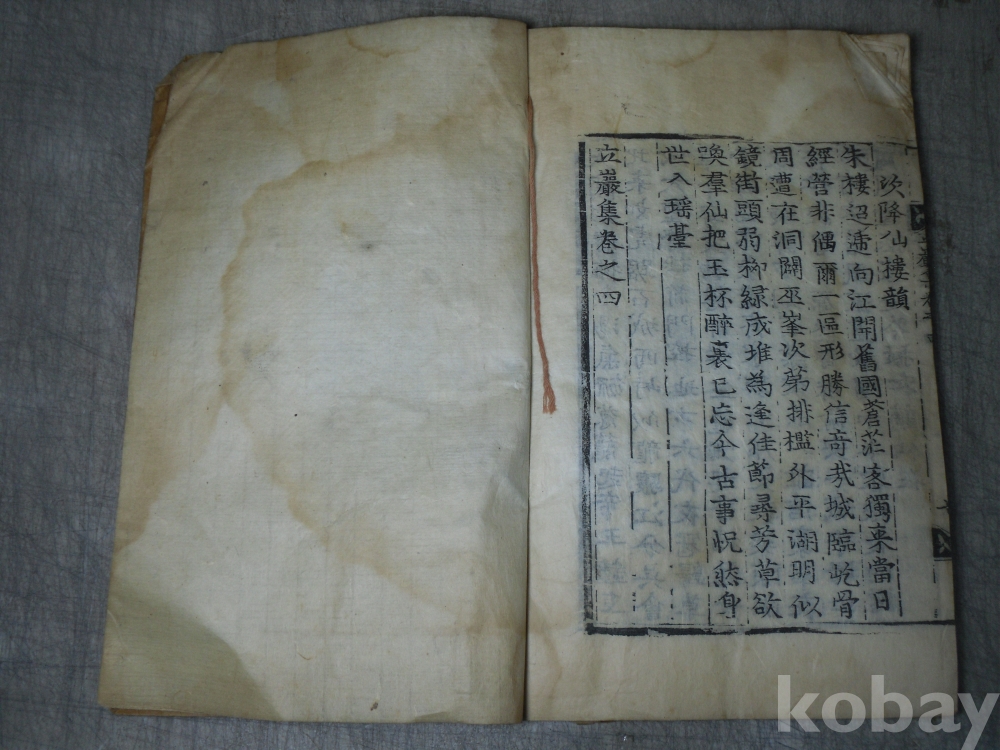 次降仙樓韻
朱樓迢遞向江開舊國蒼茫客獨來當日
經營非偶爾一區形勝信奇哉城臨屹骨
周遭在洞闢巫峯次第排檻外平湖明似
鏡街頭弱柳綠成堆為逢佳節尋芳草欲
喚羣仙把玉杯醉裏已忘今古事怳然身
世入瑤臺
立巖集卷之四
kobay